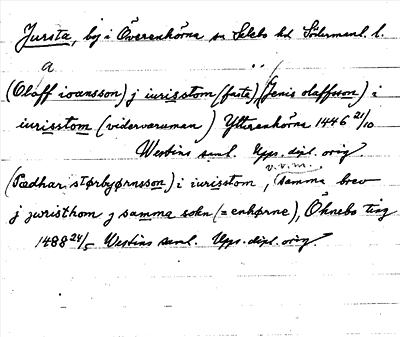 Jursta, by i Överenhörna sn Selebo hd Södermanl. l.
a
(Olaff ioansson) j iurisstom (fasta), (Jenis olaffsson) i
iurisstom (vidervaruman) Ytterenhörna 1446 21/10
Westins saml. Upps. dipl. orig.
(Pædhar størbyørnsson) i iurisstom, samma brev
v.v.m.
j juristhom j samma sokn (= enhørne), Öknebo ting
1488 24/5 Westins saml. Upps. dipl. orig.